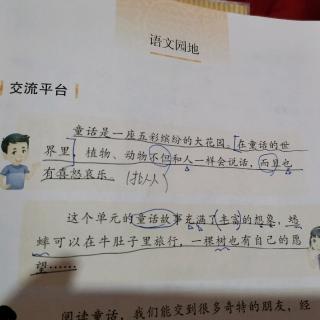 语文园地
交流平台
童话是一座五彩缤纷的大花园。在童话的世
界里，植物、动物不但和人一样会说话，而且也
有喜怒哀乐。(拟人)
这个单元的童话故事充满了丰富的想象，蟋
蟀可以在牛肚子里旅行，一棵树也有自己的愿
望……
阅读童话，我们能交到很多奇特的朋友，经